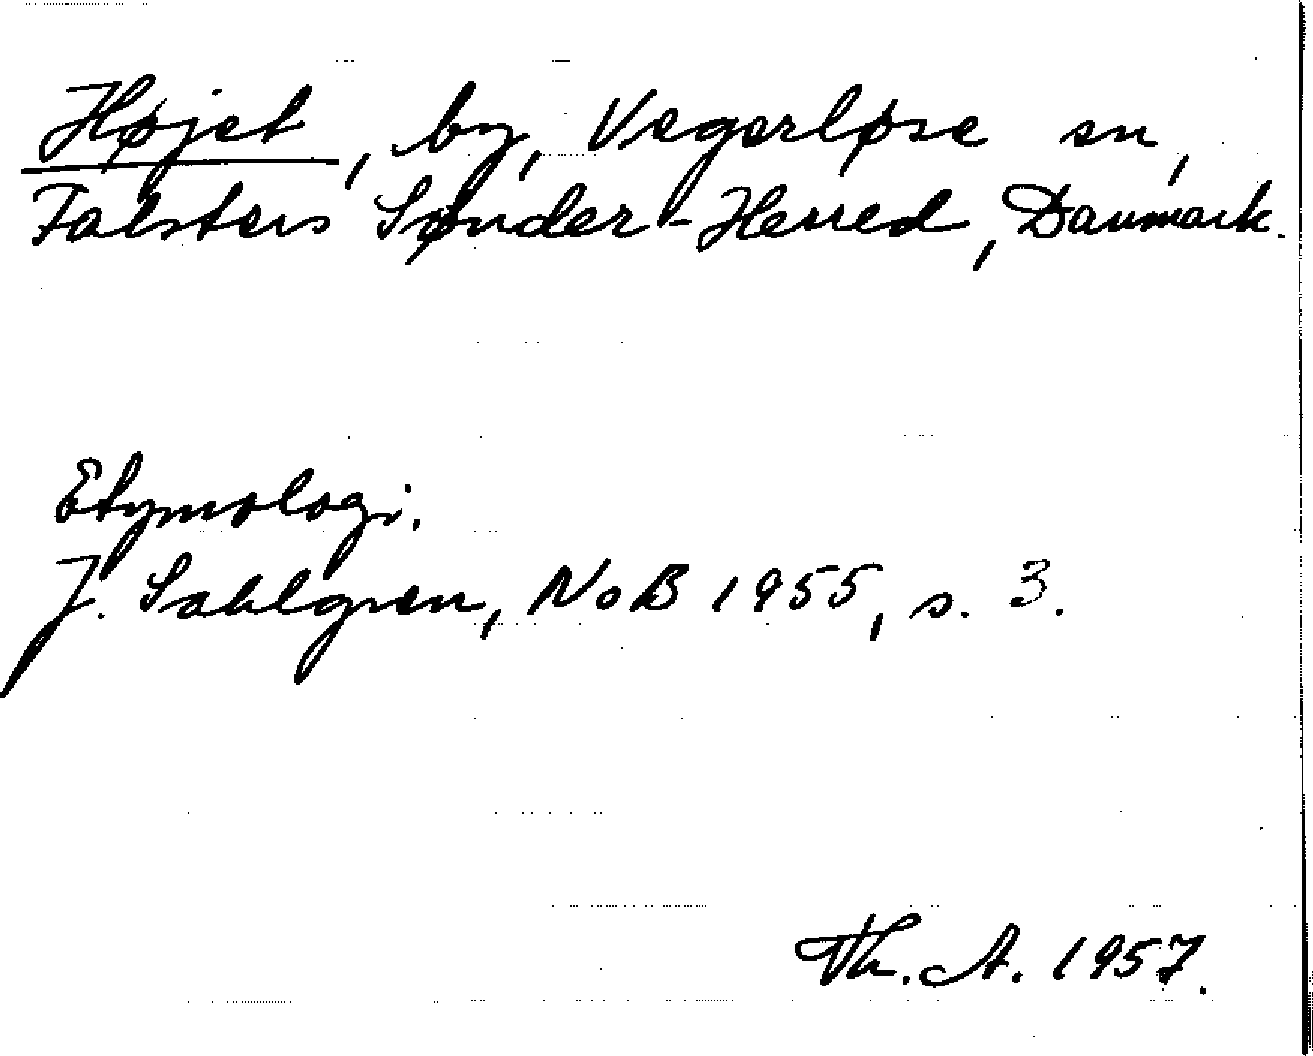 Højet, by, Vegerløse sn,
Falsters Sønder-Herred, Danmark.
Etymologi.
J. Sahlgren, NoB 1955, s. 3.
Th. A. 1957.